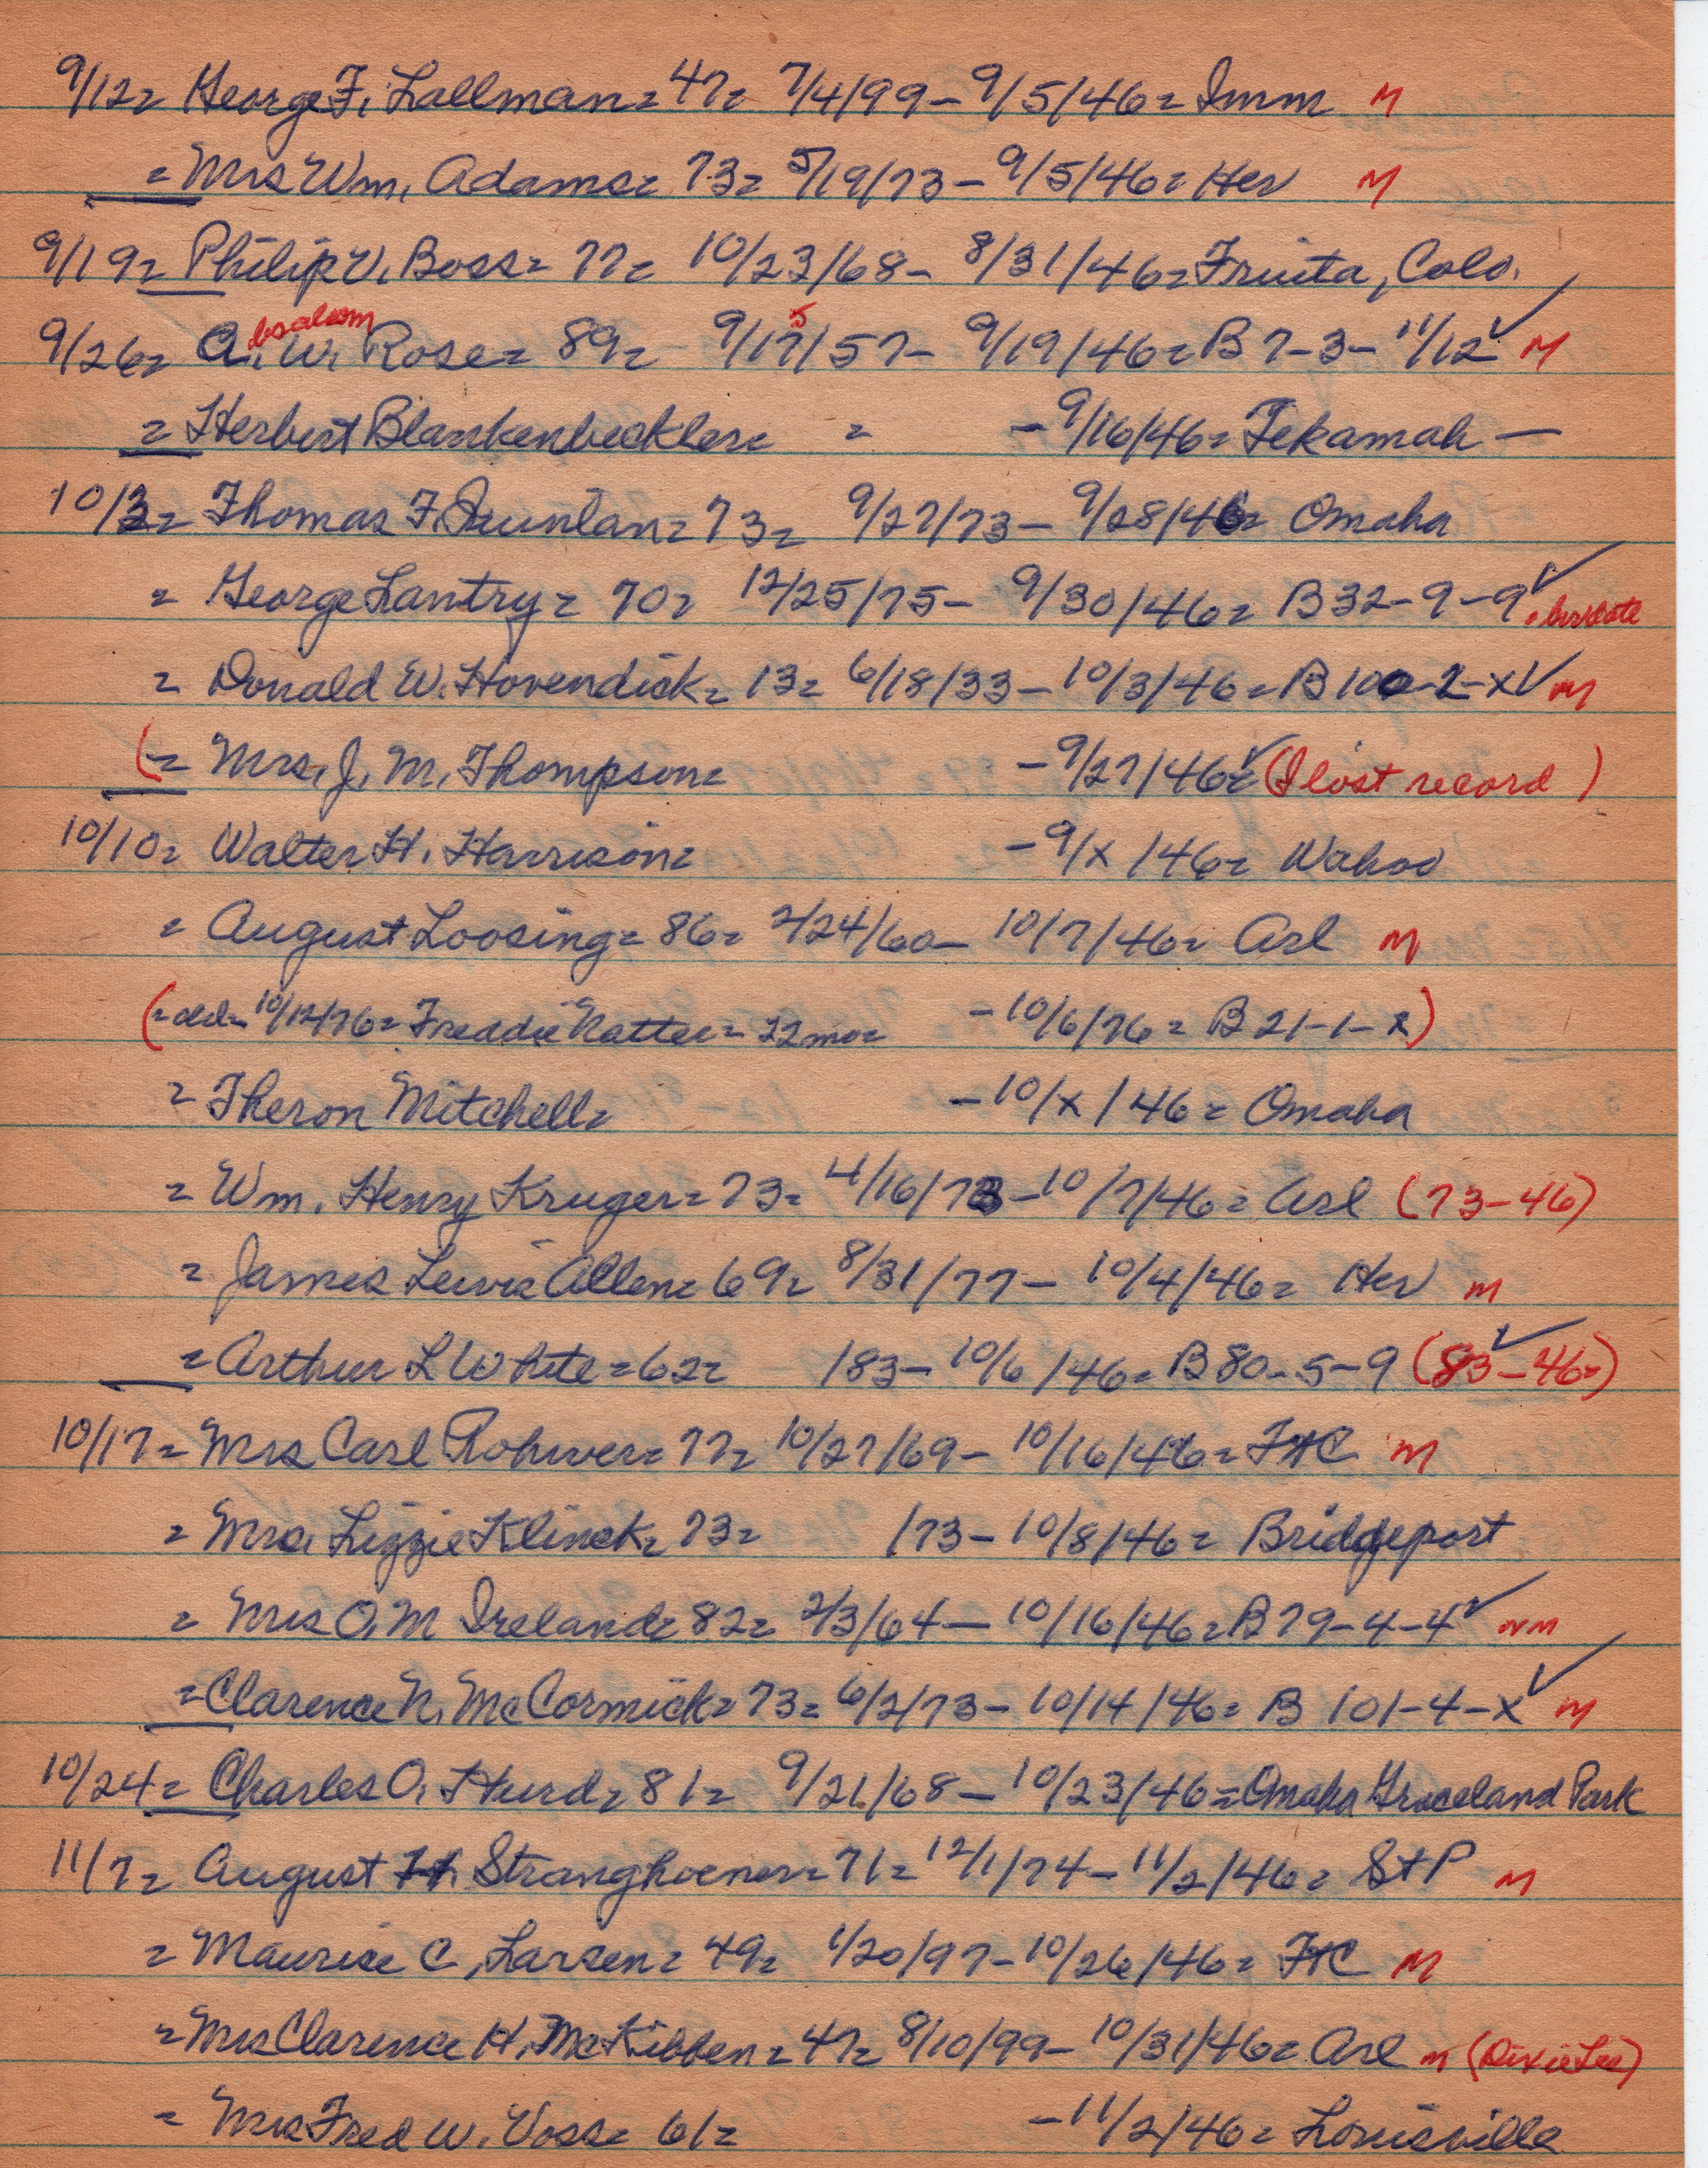 9/12= George F. Lallman= 47= 7/4/99- 9/5/46= Imm M
= Mrs Wm. Adams= 73= 5/19/73- 9/5/46= Her M
9/19= Philip V. Boss= 77= 10/23/68- 8/31/46= Fruita, Colo.
9/26= A.bsalom W. Rose= 89= 9/17/57- 5 9/19/46= B 7-3-11/12 ✓ M
= Herbert Blankenbeckler= = -9/16/46= Tekamah —
10/3= Thomas F. Quinlan= 73= 9/27/73- 9/28/46= Omaha
= George Lantry= 70= 12/25/75- 9/30/46= B 32-9-9 ✓
= Donald W. Hovendick= 13= 6/18/33- 10/3/46= B 100-2-x ✓ M
(= Mrs. J. M. Thompson= -9/27/46= ✓ (I lost record)
10/10= Walter H. Harrison= -9/x/46= Wahoo
= August Loosing= 86= 2/24/60- 10/7/46= Arl M
(= old- 10/12/76= Freddie Natter= 22mo= -10/6/76= B 21-1-x)
= Theron Mitchell= -10/x/46= Omaha
= Wm. Henry Kruger= 73= 4/16/73- 10/7/46= Arl (73-46)
= James Lewis Allen= 69= 8/31/77- 10/4/46= Her M
= Arthur L White= 62= /83- 10/6/46= B 80-5-9 ✓ (83-46=)
10/17= Mrs Carl Rohwer= 77= 10/27/69- 10/16/46= FtC M
= Mrs. Lizzie Klinck= 73= /73- 10/8/46= Bridgeport
= Mrs O. M Ireland= 82= 2/3/64- 10/16/46= B 79-4-4 ✓ nm
= Clarence N. McCormick= 73= 6/2/73- 10/14/46= B 101-4-x ✓ M
10/24= Charles O. Hurd= 81= 9/21/68- 10/23/46= Omaha Graceland Park
11/7= August H. Stranghoener= 71= 12/1/74- 11/2/46= StP M
= Maurice C. Larsen= 49= 1/20/97- 10/26/46= FtC M
= Mrs Clarence H. McKibben= 47= 8/10/99- 10/31/46= Arl M (Dixie Lee)
= Mrs Fred W. Voss= 61= -11/2/46= Louisville